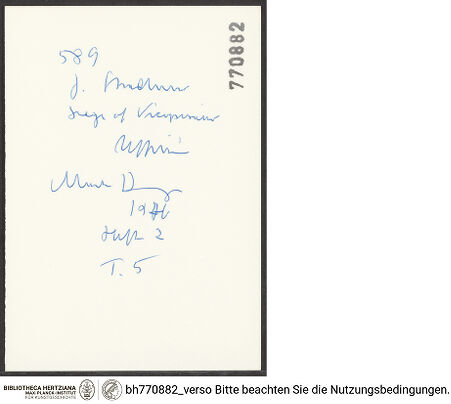 770882
589
J.
Siege of Vicopisano
Uffizi
1976
Heft 2
T. 5
BIBLIOTHECA HERTZIANA
MAX-PLANCK-INSTITUT
FÜR KUNSTGESCHICHTE
bh770882_verso Bitte beachten Sie die Nutzungsbedingungen.